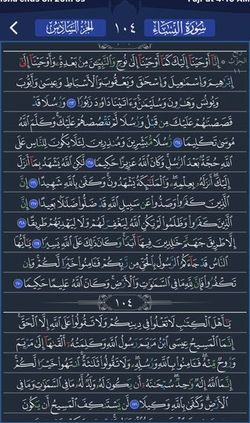 سُورَةُ النِّسَاءِ ١٠٤ الجزء السادس
۞ إِنَّآ أَوۡحَيۡنَآ إِلَيۡكَ كَمَآ أَوۡحَيۡنَآ إِلَىٰ نُوحٖ وَٱلنَّبِيِّـۧنَ مِنۢ بَعۡدِهِۦۚ وَأَوۡحَيۡنَآ إِلَىٰٓ
إِبۡرَٰهِيمَ وَإِسۡمَٰعِيلَ وَإِسۡحَٰقَ وَيَعۡقُوبَ وَٱلۡأَسۡبَاطِ وَعِيسَىٰ وَأَيُّوبَ
وَيُونُسَ وَهَٰرُونَ وَسُلَيۡمَٰنَۚ وَءَاتَيۡنَا دَاوُۥدَ زَبُورٗا ١٦٣ وَرُسُلٗا قَدۡ
قَصَصۡنَٰهُمۡ عَلَيۡكَ مِن قَبۡلُ وَرُسُلٗا لَّمۡ نَقۡصُصۡهُمۡ عَلَيۡكَۚ وَكَلَّمَ ٱللَّهُ
مُوسَىٰ تَكۡلِيمٗا ١٦٤ رُّسُلٗا مُّبَشِّرِينَ وَمُنذِرِينَ لِئَلَّا يَكُونَ لِلنَّاسِ عَلَى
ٱللَّهِ حُجَّةُۢ بَعۡدَ ٱلرُّسُلِۚ وَكَانَ ٱللَّهُ عَزِيزًا حَكِيمٗا ١٦٥ لَّٰكِنِ ٱللَّهُ يَشۡهَدُ بِمَآ أَنزَلَ
إِلَيۡكَۖ أَنزَلَهُۥ بِعِلۡمِهِۦۖ وَٱلۡمَلَٰٓئِكَةُ يَشۡهَدُونَۚ وَكَفَىٰ بِٱللَّهِ شَهِيدًا ١٦٦ إِنَّ
ٱلَّذِينَ كَفَرُواْ وَصَدُّواْ عَن سَبِيلِ ٱللَّهِ قَدۡ ضَلُّواْ ضَلَٰلَۢا بَعِيدًا ١٦٧ إِنَّ
ٱلَّذِينَ كَفَرُواْ وَظَلَمُواْ لَمۡ يَكُنِ ٱللَّهُ لِيَغۡفِرَ لَهُمۡ وَلَا لِيَهۡدِيَهُمۡ طَرِيقًا ١٦٨
إِلَّا طَرِيقَ جَهَنَّمَ خَٰلِدِينَ فِيهَآ أَبَدٗاۚ وَكَانَ ذَٰلِكَ عَلَى ٱللَّهِ يَسِيرٗا ١٦٩ يَٰٓأَيُّهَا
ٱلنَّاسُ قَدۡ جَآءَكُمُ ٱلرَّسُولُ بِٱلۡحَقِّ مِن رَّبِّكُمۡ فَـَٔامِنُواْ خَيۡرٗا لَّكُمۡۚ وَإِن
تَكۡفُرُواْ فَإِنَّ لِلَّهِ مَا فِي ٱلسَّمَٰوَٰتِ وَٱلۡأَرۡضِۚ وَكَانَ ٱللَّهُ عَلِيمًا حَكِيمٗا ١٧٠
١٠٤
يَٰٓأَهۡلَ ٱلۡكِتَٰبِ لَا تَغۡلُواْ فِي دِينِكُمۡ وَلَا تَقُولُواْ عَلَى ٱللَّهِ إِلَّا ٱلۡحَقَّۚ
إِنَّمَا ٱلۡمَسِيحُ عِيسَى ٱبۡنُ مَرۡيَمَ رَسُولُ ٱللَّهِ وَكَلِمَتُهُۥٓ أَلۡقَىٰهَآ إِلَىٰ مَرۡيَمَ
وَرُوحٞ مِّنۡهُۖ فَـَٔامِنُواْ بِٱللَّهِ وَرُسُلِهِۦۖ وَلَا تَقُولُواْ ثَلَٰثَةٌۚ ٱنتَهُواْ خَيۡرٗا لَّكُمۡۚ
إِنَّمَا ٱللَّهُ إِلَٰهٞ وَٰحِدٞۖ سُبۡحَٰنَهُۥٓ أَن يَكُونَ لَهُۥ وَلَدٞۘ لَّهُۥ مَا فِي ٱلسَّمَٰوَٰتِ وَمَا فِي
ٱلۡأَرۡضِۗ وَكَفَىٰ بِٱللَّهِ وَكِيلٗا ١٧١ لَّن يَسۡتَنكِفَ ٱلۡمَسِيحُ أَن يَكُونَ